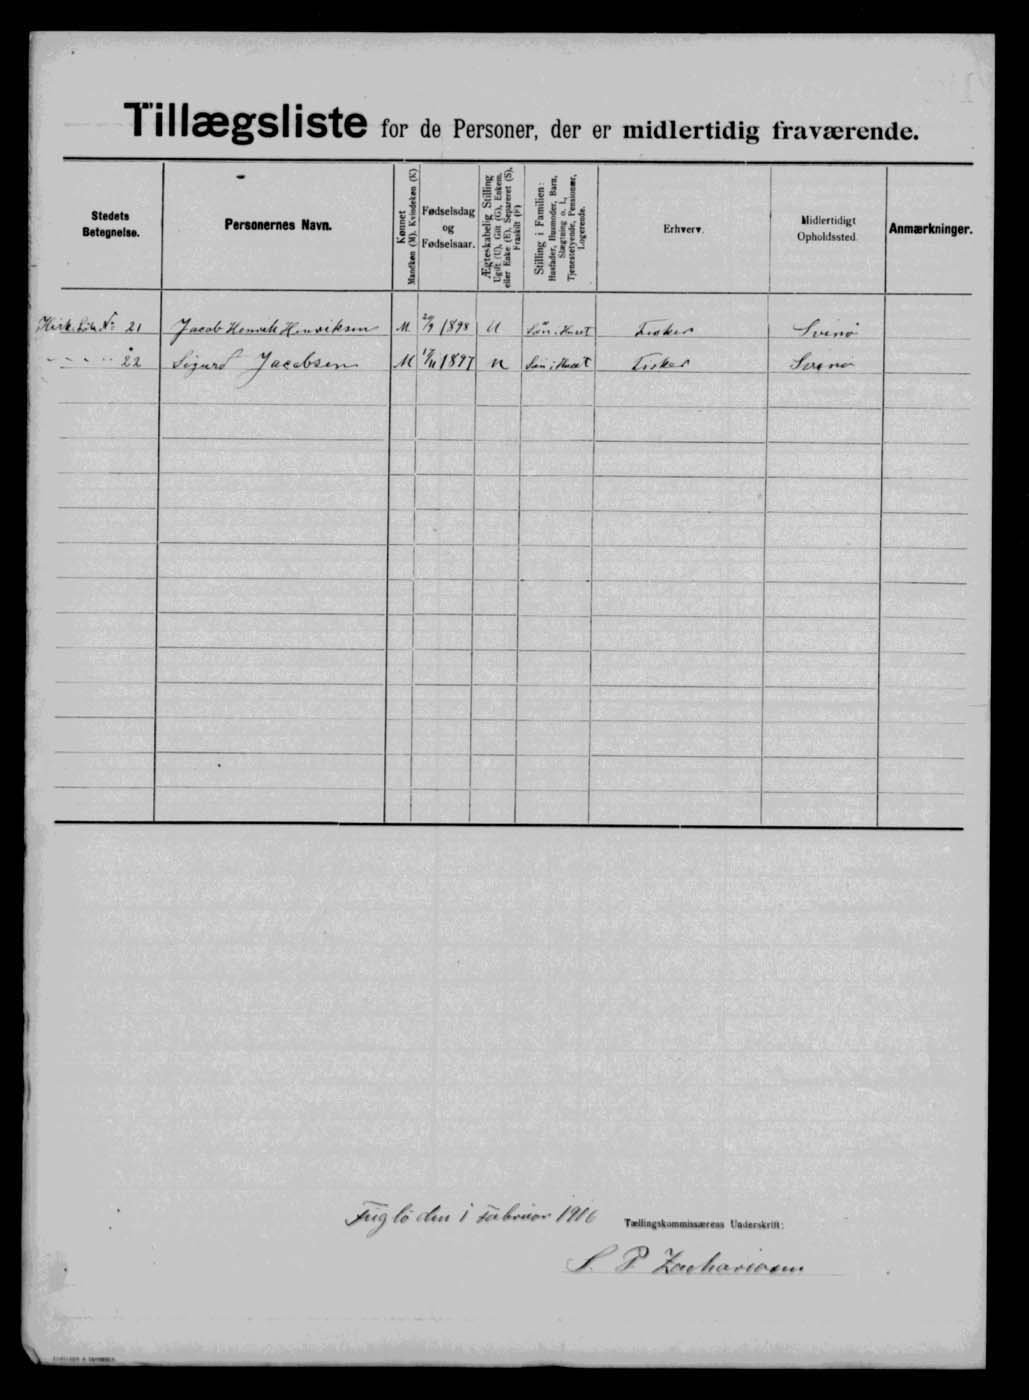 Tillægsliste for de Personer, der er midlertidig fraværende.
Stedets
Betegnelse.
Personernes Navn.
Kønnet
Mandkøn (M). Kvindekøn (K)
Fødselsdag
og
Fødselsaar.
Ægteskabelig Stilling
Ugift (U), Gift (G), Enkem.
eller Enke (E), Separeret (S),
Fraskilt (F)
Stilling i Familien:
Husfader, Husmoder, Barn,
Slægtning o. l.,
Tjenestetyende, Pensionær,
Logerende.
Erhverv.
Midlertidigt
Opholdssted.
Anmærkninger.
21 Jacob Henrik Henriksen M 1898 U Søn i Huset Fisker Svinø
22 Sigurd Jacobsen M 1897 U Søn i Huset Fisker Svinø
Fuglö den 1 Februar 1916 Tællingskommissærens Underskrift:
S. P Zachariasen